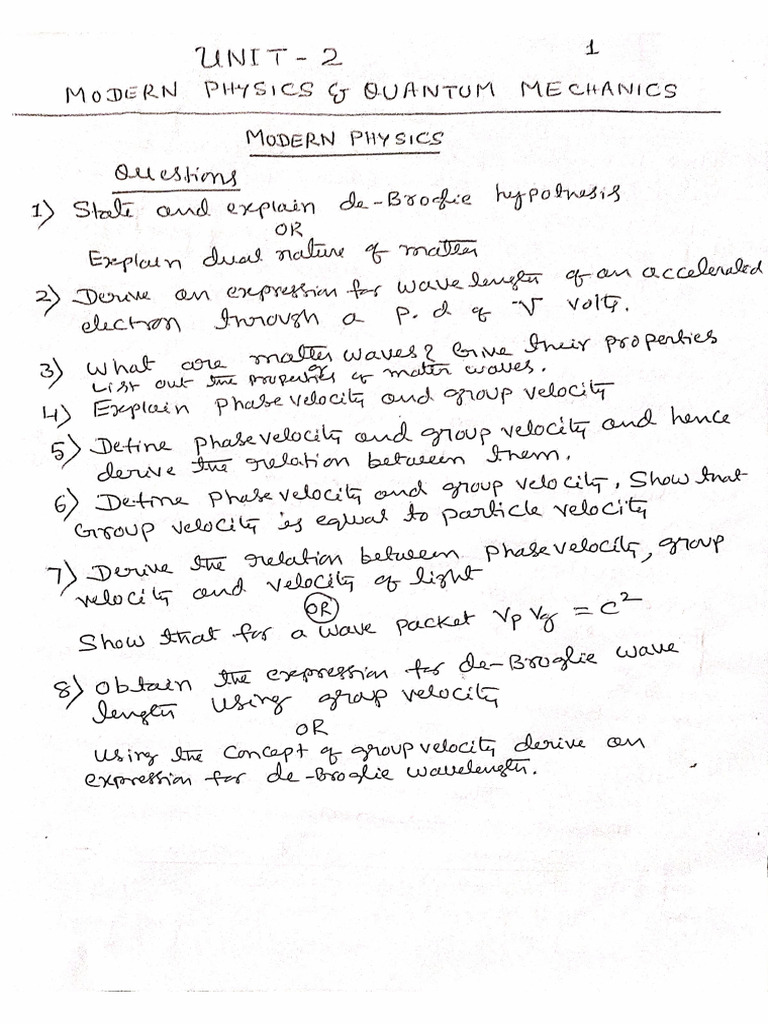 UNIT - 2
1
MODERN PHYSICS & QUANTUM MECHANICS
MODERN PHYSICS
Questions
1) State and explain de-Broglie hypothesis
OR
Explain dual nature of matter
2) Derive an expression for wavelength of an accelerated
electron through a p.d of V volts.
3) What are matter waves? Give their properties
or
List out the properties of matter waves.
4) Explain phase velocity and group velocity
5) Define phase velocity and group velocity and hence
derive the relation between them.
6) Define phase velocity and group velocity. Show that
Group velocity is equal to particle velocity
7) Derive the relation between phase velocity, group
velocity and velocity of light
OR
Show that for a wave packet Vp Vg = C²
8) Obtain the expression for de-Broglie wave
length using group velocity
OR
Using the concept of group velocity derive an
expression for de-Broglie wavelength.